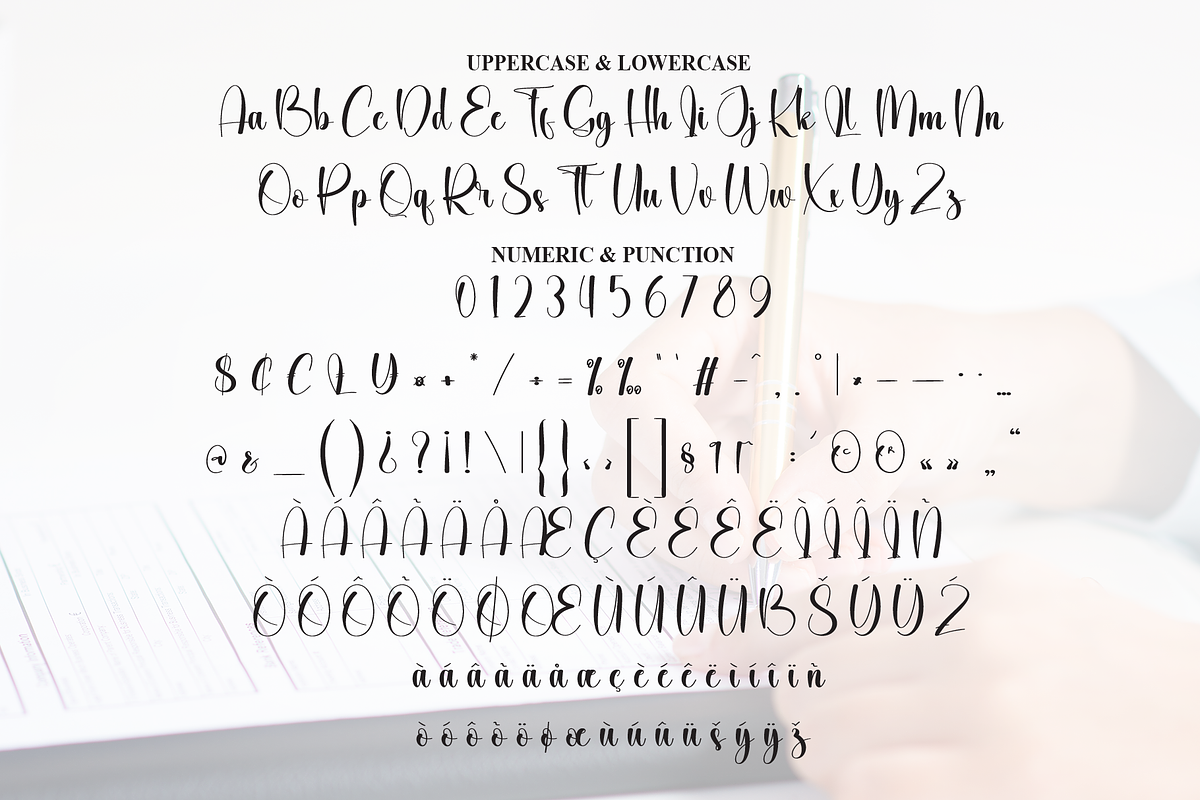 UPPERCASE & LOWERCASE
Aa Bb Cc Dd Ee Ff Gg Hh Ii Jj Kk Ll Mm Nn
Oo Pp Qq Rr Ss Tt Uu Vv Ww Xx Yy Zz
NUMERIC & PUNCTION
0 1 2 3 4 5 6 7 8 9
$ ¢ £ ¥ ¤ + * / ÷ = % ‰ # - ^ , . ° | – — · ¨ …
@ & _ ( ) ¿ ? ¡ ! \ | { } ‹ › [ ] § ¶ : ´ © ® « » „ “
À Á Â À Ä Å Æ Ç È É Ê Ë Ì Í Î Ï Ñ
Ò Ó Ô Ò Ö Ø Œ Ù Ú Û Ü B Š Ý Ÿ Ž
à á â à ä å æ ç è é ê ë ì í î ï ñ
ò ó ô ò ö ø œ ù ú û ü š ý ÿ ž